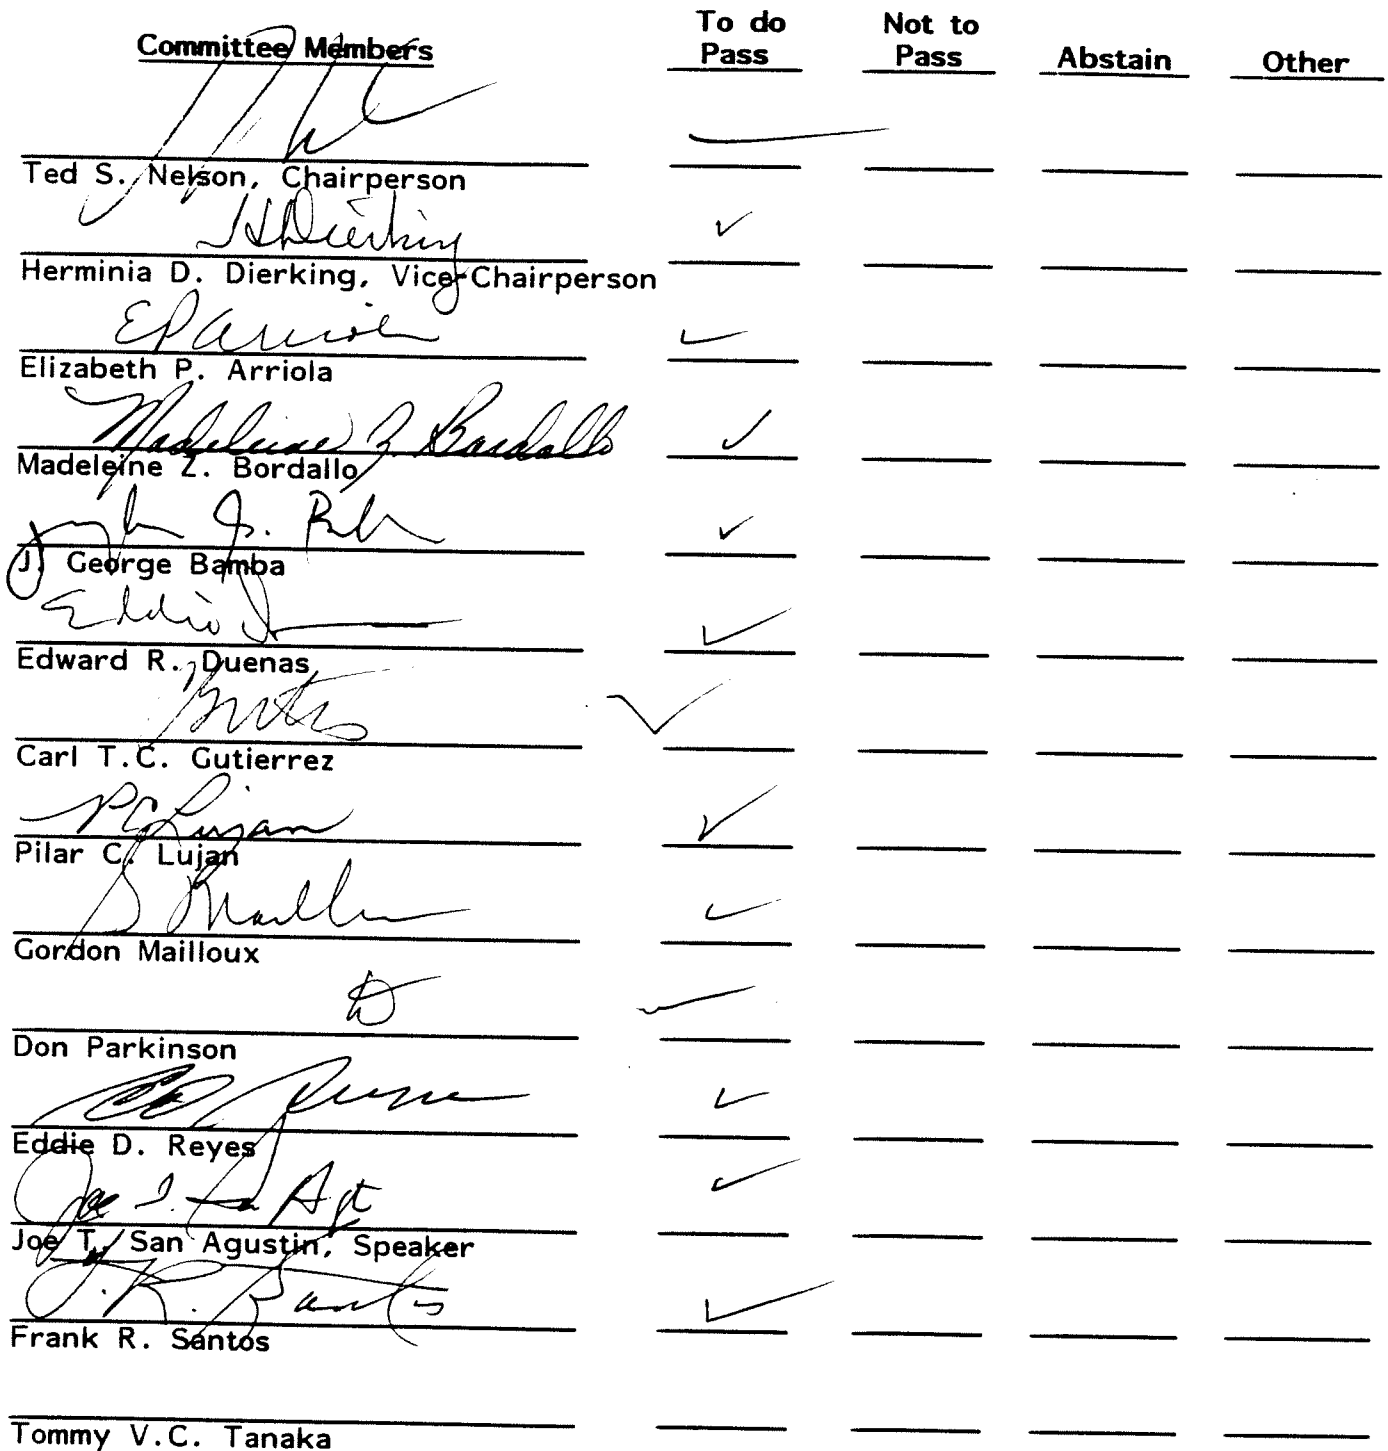 To do Not to
Committee Members Pass Pass Abstain Other
✓
Ted S. Nelson, Chairperson
HDierking ✓
Herminia D. Dierking, Vice-Chairperson
EPArriola ✓
Elizabeth P. Arriola
Madeleine Z. Bordallo ✓
Madeleine Z. Bordallo
✓
J. George Bamba
Eddie D ✓
Edward R. Duenas
✓
Carl T.C. Gutierrez
PCLujan ✓
Pilar C. Lujan
G Mailloux ✓
Gordon Mailloux
✓
Don Parkinson
✓
Eddie D. Reyes
Joe T. San Agt ✓
Joe T. San Agustin, Speaker
F. R. Santos ✓
Frank R. Santos
Tommy V.C. Tanaka